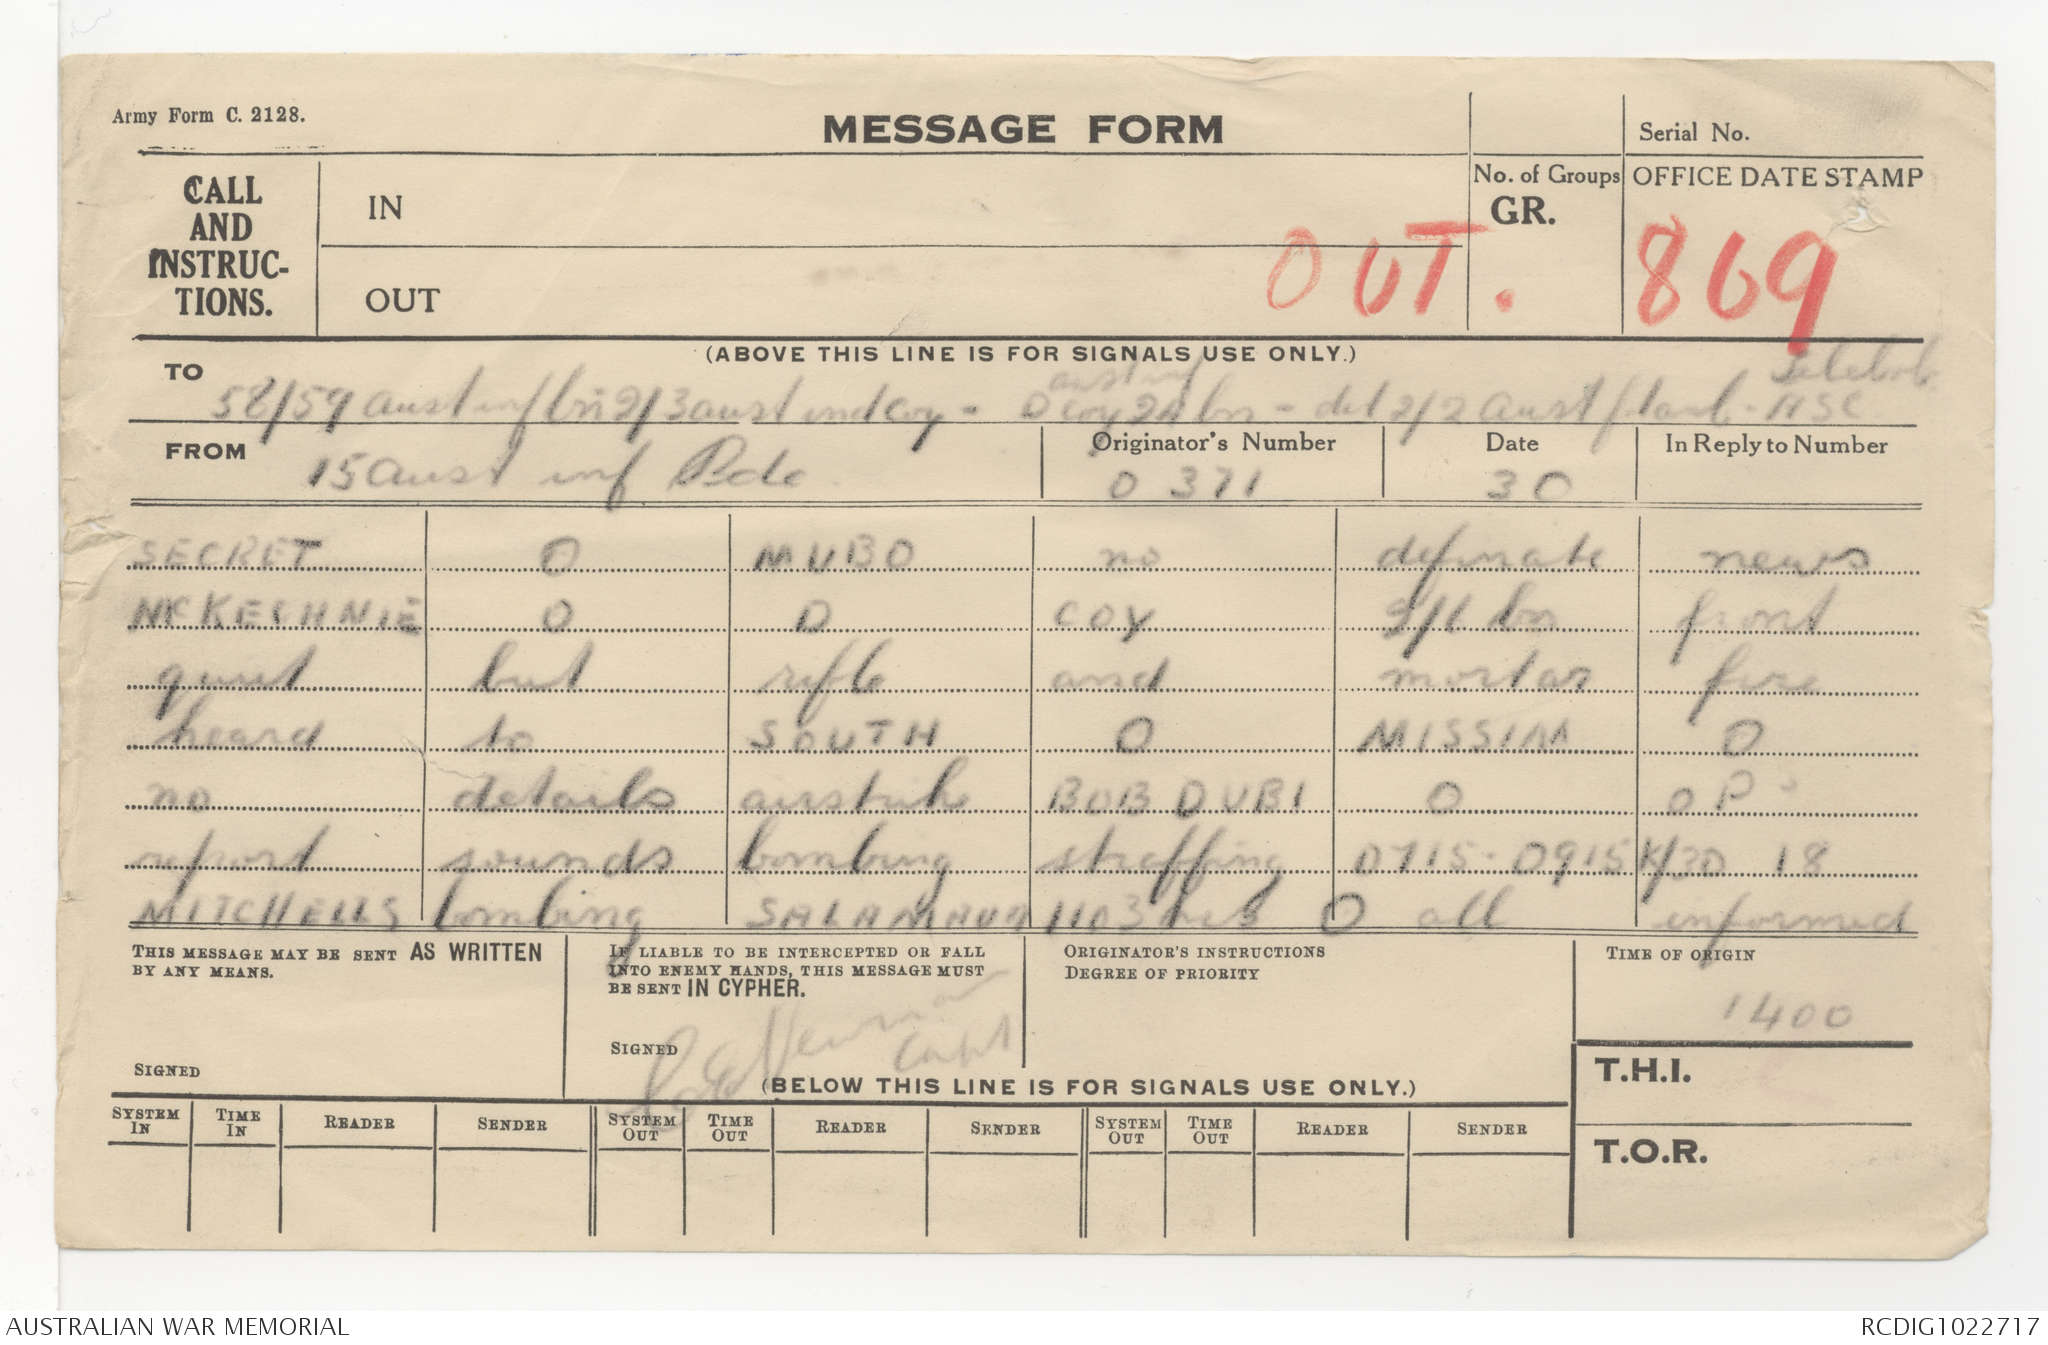 Army Form C. 2128.
MESSAGE FORM
Serial No.
CALL AND INSTRUC-TIONS.
IN
OUT
No. of Groups GR.
OFFICE DATE STAMP
OUT. 869
(ABOVE THIS LINE IS FOR SIGNALS USE ONLY.)
TO
58/59 aust inf bn 2/3 aust ind coy - D coy 24 aust inf bn - det 2/2 Aust fd amb - ASC
FROM
15 aust inf Bde
Originator's Number
O 371
Date
30
In Reply to Number
SECRET O MUBO no definate news
McKECHNIE O D COY 9/16 bn front
quiet but rifle and mortar fire
heard to SOUTH O MISSIM O
no details airstrike BOBDUBI O OPs
report sounds bombing straffing 0715-0915K/30 18
MITCHELLS bombing SALAMAUA 1103 hrs O all informed
THIS MESSAGE MAY BE SENT AS WRITTEN
BY ANY MEANS.
SIGNED
IF LIABLE TO BE INTERCEPTED OR FALL
INTO ENEMY HANDS, THIS MESSAGE MUST
BE SENT IN CYPHER.
SIGNED
Newman Capt
ORIGINATOR'S INSTRUCTIONS
DEGREE OF PRIORITY
TIME OF ORIGIN
1400
(BELOW THIS LINE IS FOR SIGNALS USE ONLY.)
T.H.I.
T.O.R.
SYSTEM IN TIME IN READER SENDER SYSTEM OUT TIME OUT READER SENDER SYSTEM OUT TIME OUT READER SENDER
AUSTRALIAN WAR MEMORIAL
RCDIG1022717